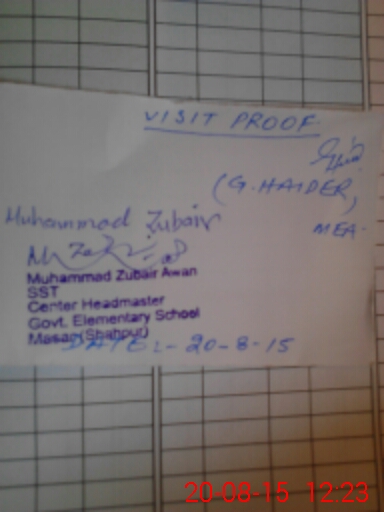 VISIT PROOF
(G. HAIDER,
MEA.
Muhammad Zubair
Muhammad Zubair Awan
SST
Center Headmaster
Govt. Elementary School
Masar (Shahpur)
DATE:- 20-8-15
20-08-15 12:23